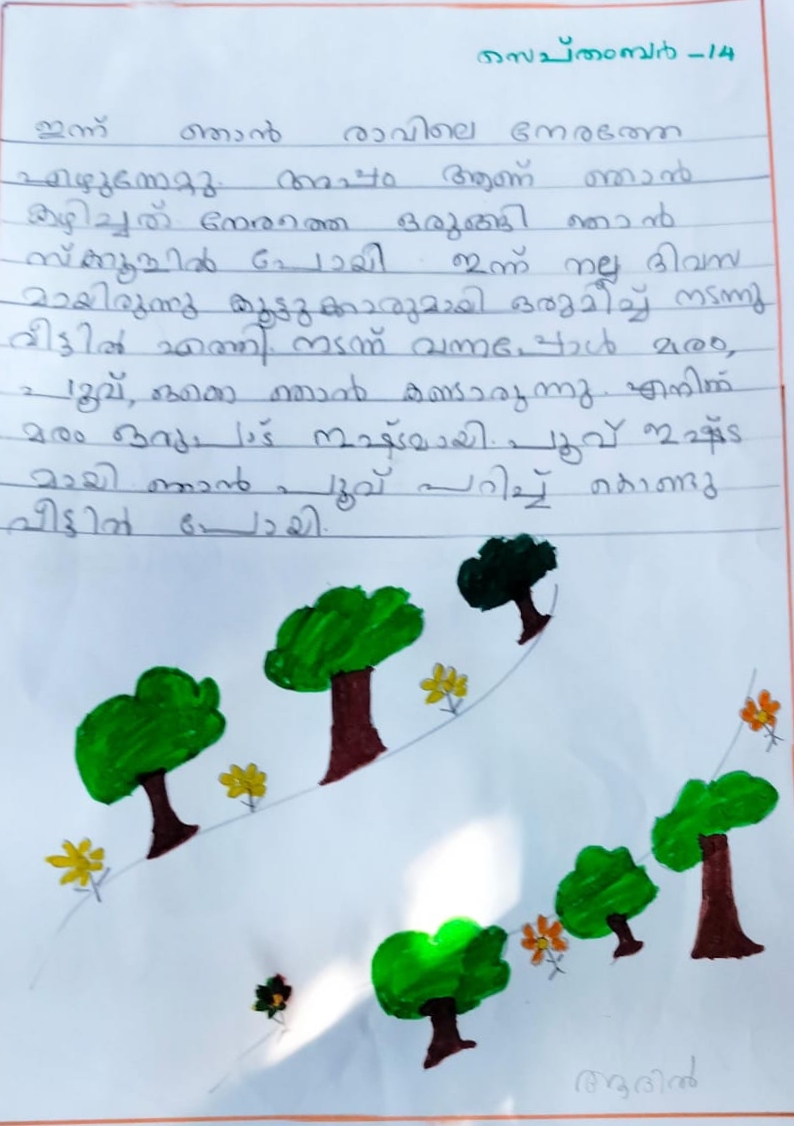 സെപ്തംമ്പർ -14
ഇന്ന് ഞാൻ രാവിലെ നേരത്തേ
എഴുന്നേറ്റു. അപ്പം ആണ് ഞാൻ
കഴിച്ചത് നേരത്തെ ഒരുങ്ങി ഞാൻ
സ്ക്കൂളിൽ പോയി. ഇന്ന് നല്ല ദിവസ
മായിരുന്നു കൂട്ടുക്കാരുമായി ഒരുമിച്ച് നടന്നു
വീട്ടിൽ എത്തി. നടന്ന് വന്നപ്പോൾ മരം,
പൂവ്, ഒക്കെ ഞാൻ കണ്ടാരുന്നു. എനിക്ക്
മരം ഒരുപാട് ഇഷ്ടമായി. പൂവ് ഇഷ്ട
മായി ഞാൻ പൂവ് പറിച്ച് കൊണ്ടു
വീട്ടിൽ പോയി.
ആദിൽ